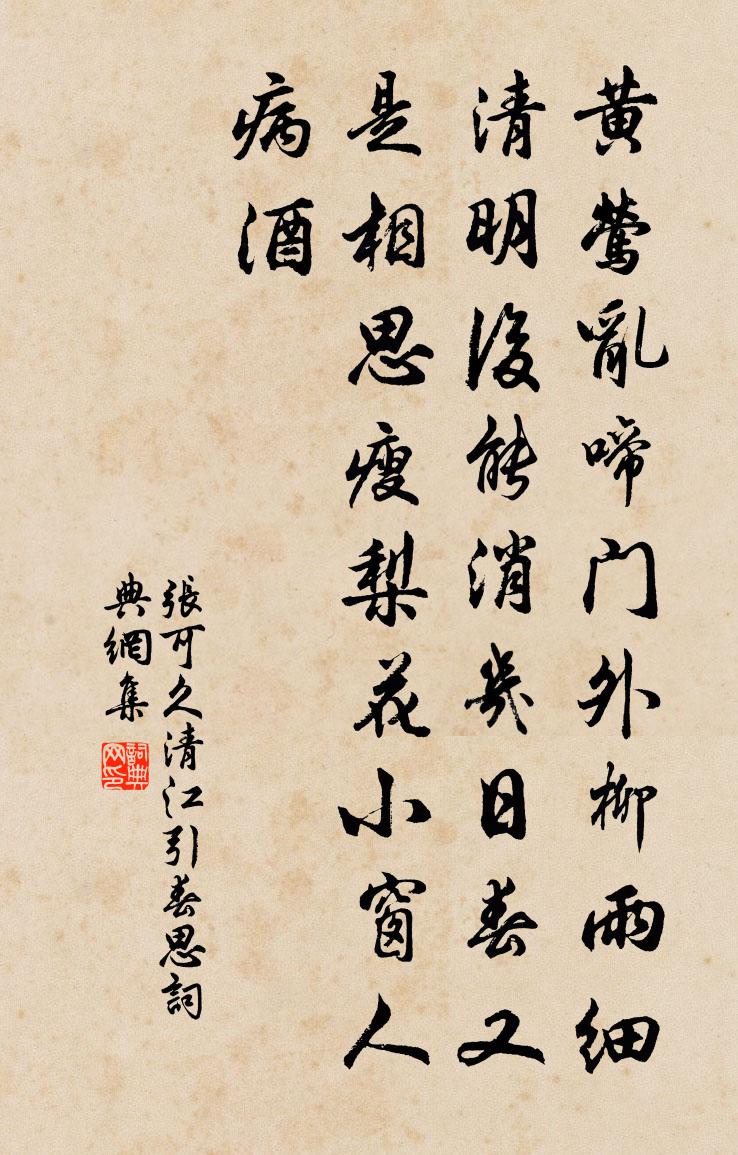 黄鶯亂啼門外柳雨細
清明後能消幾日春又
是相思瘦梨花小窗人
病酒
張可久清江引春思詞
典網集
詞典
网印